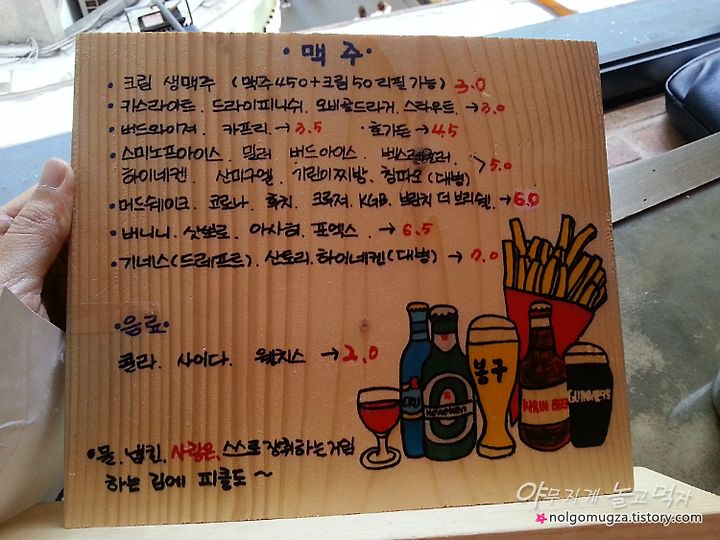 • 맥주 •
• 크림 생맥주 (맥주450+크림50 리필가능) 3.0
• 카스라이트. 드라이피니쉬. 오비골드라거. 스타우트. → 3.0
• 버드와이져. 카프리. → 3.5 • 호가든 → 4.5
• 스미노프아이스. 밀러 버드아이스.
하이네켄. 산미구엘. 기린이찌방. 칭따오(대병) > 5.0
• 머드쉐이크. 코로나. 후치. 크루져. KGB. 브란치 더 브리쉘. → 6.0
• 버니니. 삿뽀로. 아사히. 포엑스. → 6.5
• 기네스(드래프트). 산토리. 하이네켄(대병) → 7.0
• 음료
콜라. 사이다. 웰치스 → 2.0
• 물. 냅킨. 사람은. 스스로 쟁취하는거임
하는 김에 피클도 ~
봉구
Heineken
KIRIN BEER
GUINNESS
야무지게 놀고먹자
nolgomugza.tistory.com